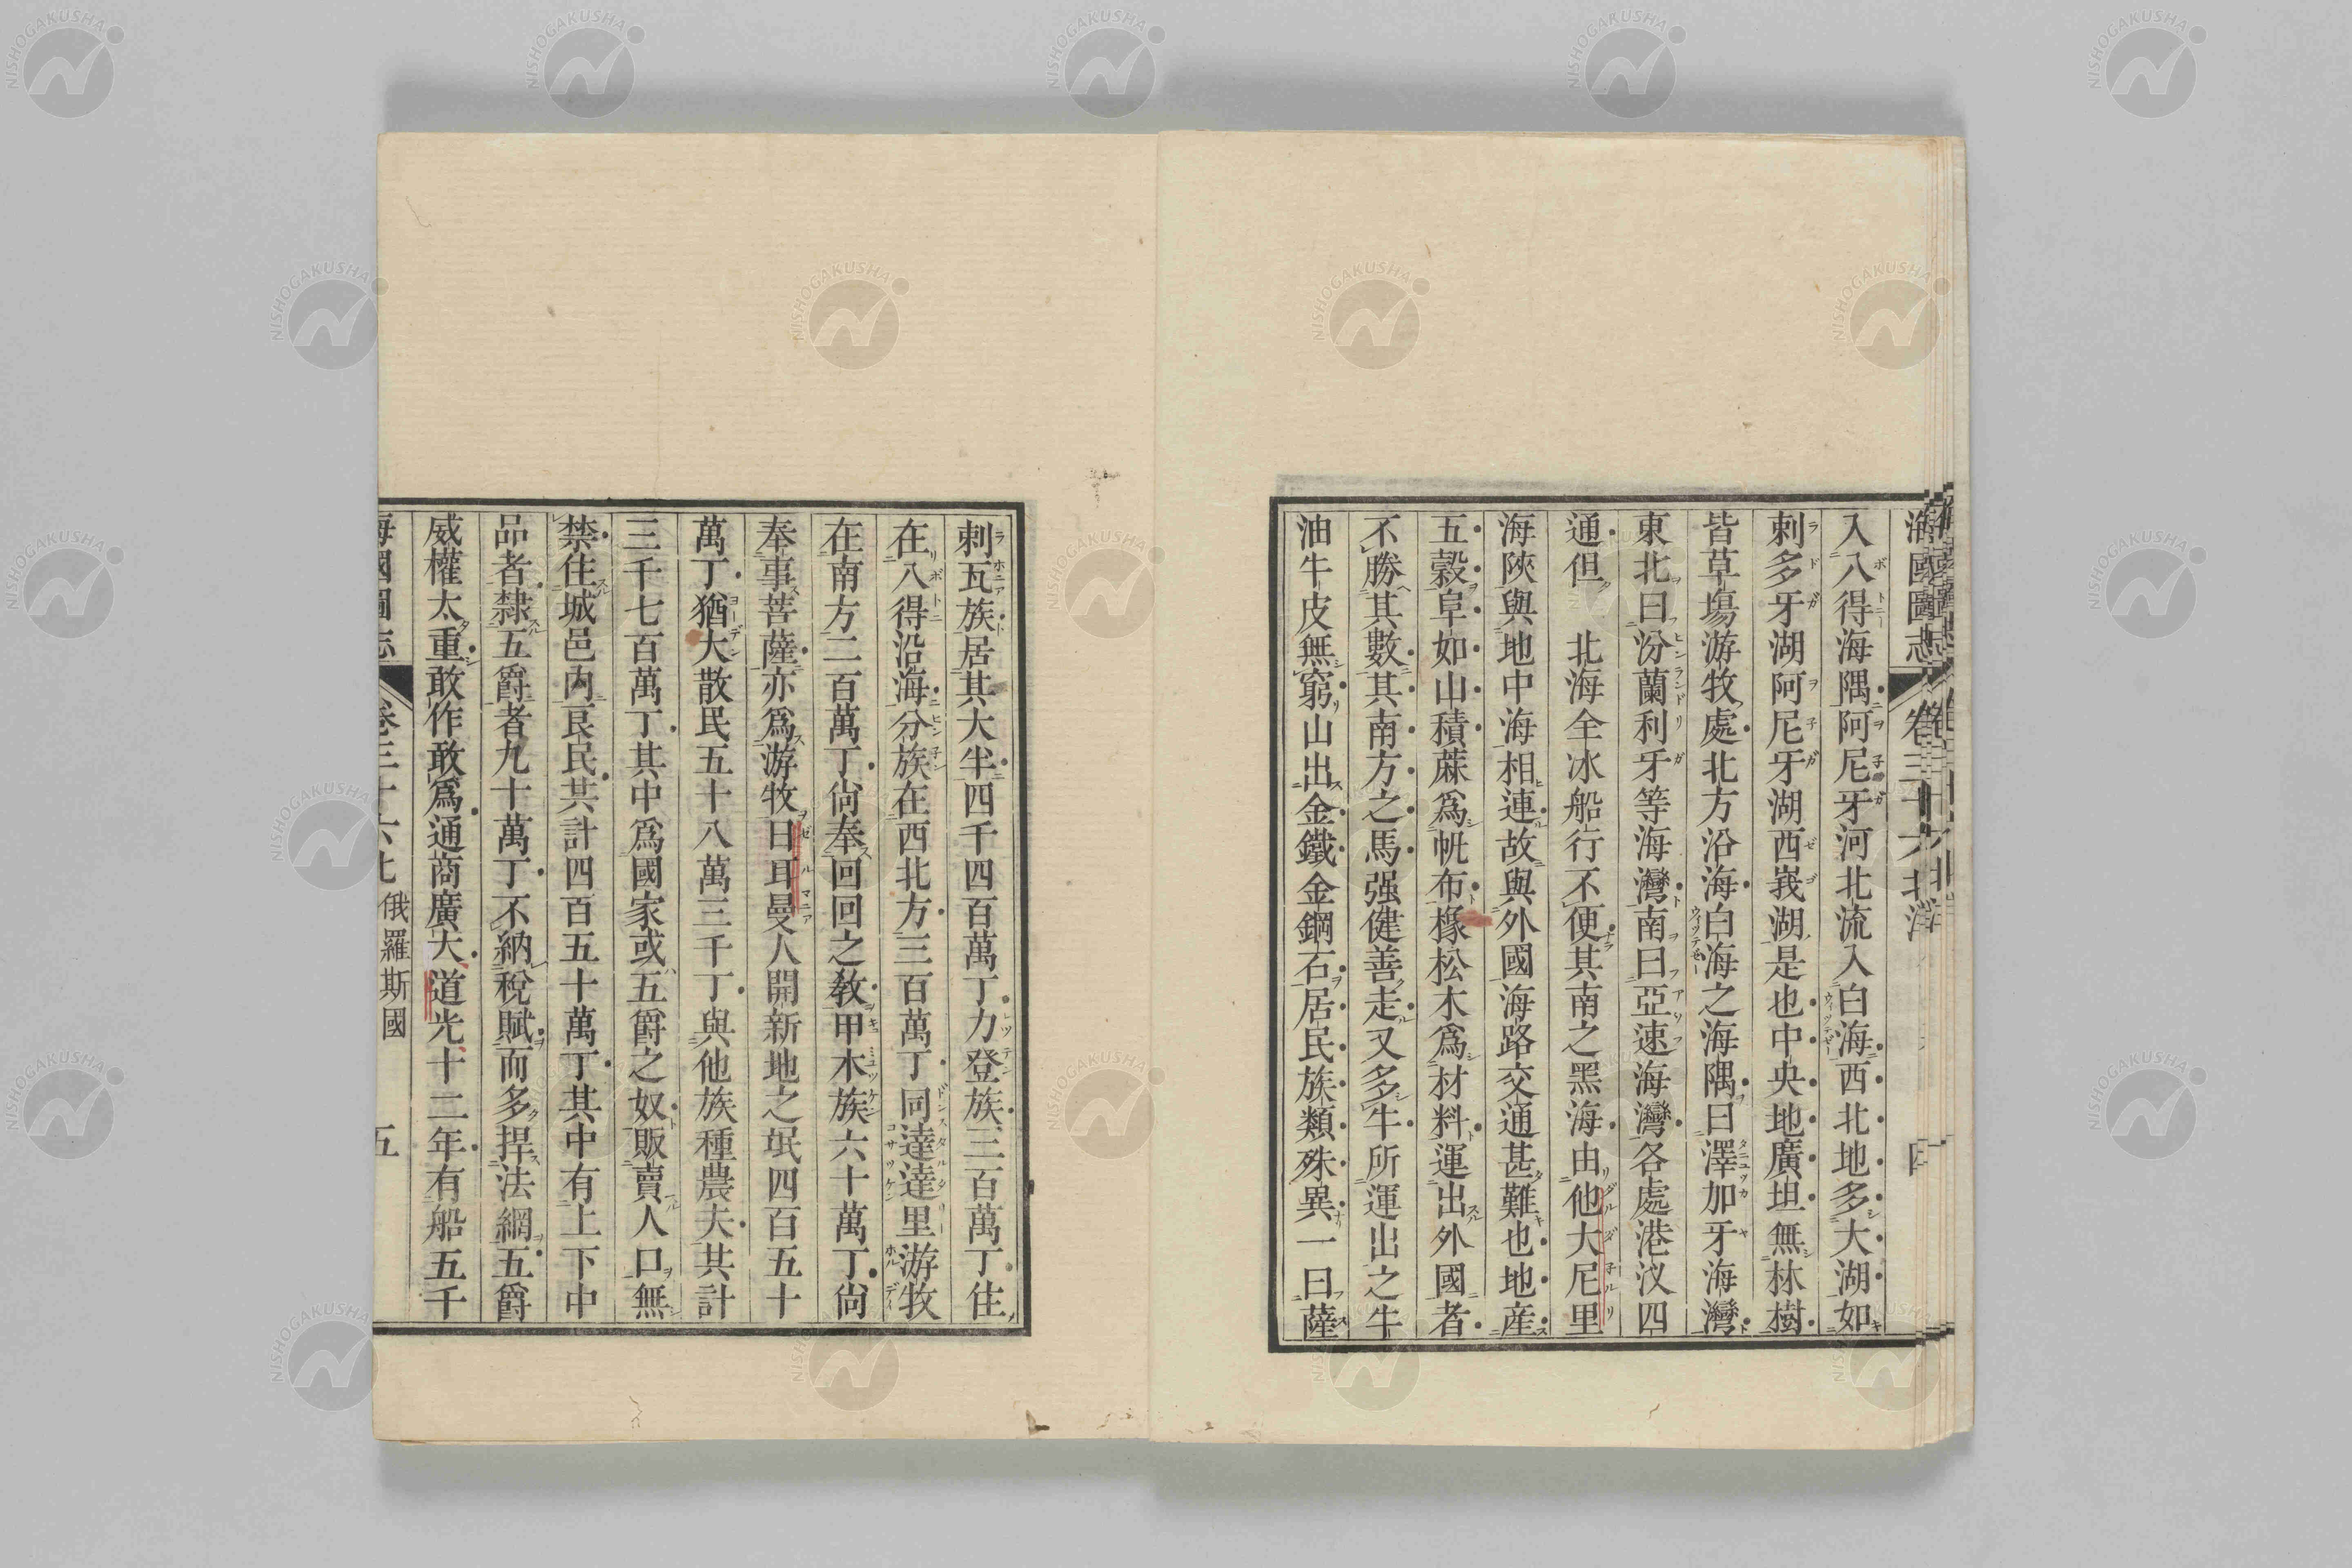 海國圖志 卷三十六 北洋 四
入八得海隅阿尼牙河北流入白海西北地多大湖如
剌多牙湖阿尼牙湖西峩湖是也中央地廣坦無林樹
皆草塲游牧處北方沿海白海之海隅曰澤加牙海灣
東北曰汾蘭利牙等海灣南曰亞速海灣各處港汊四
通但 北海全冰船行不便其南之黑海由他大尼里
海陝與地中海相連故與外國海路交通甚難也地產
五穀阜如山積蔴爲帆布橡松木爲材料運出外國者
不勝其數其南方之馬强健善走又多牛所運出之牛
油牛皮無窮山出金鐵金鋼石居民族類殊異一曰薩
剌瓦族居其大半四千四百萬丁力登族三百萬丁住
在八得沿海分族在西北方三百萬丁同達達里游牧
在南方二百萬丁尙奉回回之教甲木族六十萬丁尙
奉事菩薩亦爲游牧日耳曼人開新地之氓四百五十
萬丁猶大散民五十八萬三千丁與他族種農夫共計
三千七百萬丁其中爲國家或五爵之奴販賣人口無
禁住城邑內良民共計四百五十萬丁其中有上下中
品者隸五爵者九十萬丁不納稅賦而多捍法網五爵
威權太重敢作敢爲通商廣大道光十二年有船五千
海國圖志 卷三十六 北 俄羅斯國 五
NISHOGAKUSHA